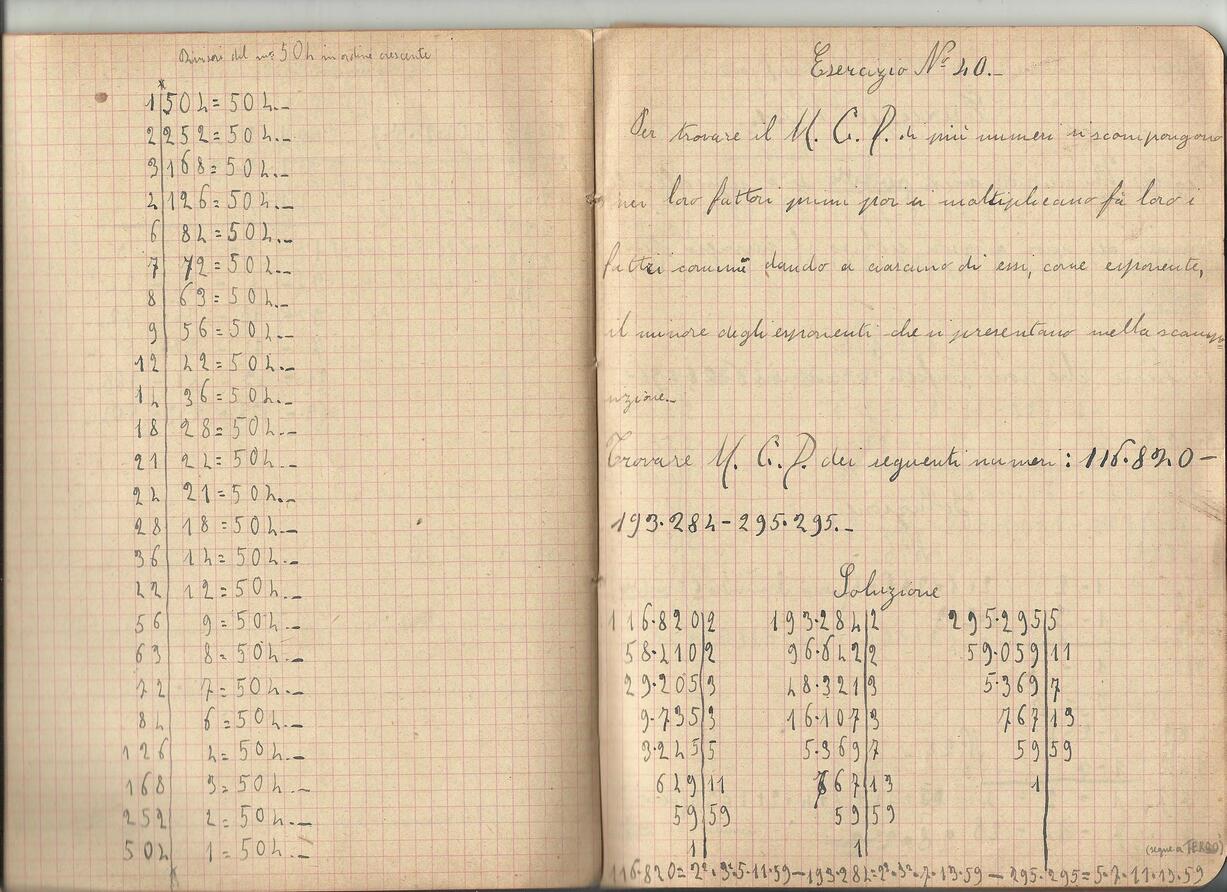 Divisori del n° 504 in ordine crescente
1|504=504.—
2|252=504.—
3|168=504.—
4|126=504.—
6|84=504.—
7|72=504.—
8|63=504.—
9|56=504.—
12|42=504.—
14|36=504.—
18|28=504.—
21|24=504.—
24|21=504.—
28|18=504.—
36|14=504.—
42|12=504.—
56|9=504.—
63|8=504.—
72|7=504.—
84|6=504.—
126|4=504.—
168|3=504.—
252|2=504.—
504|1=504.—
Esercizio N° 40.—
Per trovare il M. C. D. di più numeri si scompongono
nei loro fattori primi poi si moltiplicano fà loro i
fattri comuni dando a ciascuno di essi, come esponente,
il minore degli esponenti che si presentano nella scompo=
sizione.—
Trovare M. C. D. dei seguenti numeri: 116.820—
193.284—295.295.—
Soluzione
116.820|2 193.284|2 295.295|5
58.410|2 96.642|2 59.059|11
29.205|3 48.321|3 5.369|7
9.735|3 16.107|3 767|13
3.245|5 5.369|7 59|59
649|11 767|13 1|
59|59 59|59
1| 1|
(segue a TERGO)
116.820=2².3².5.11.59—193.284=2².3².7.13.59—295.295=5.7.11.13.59